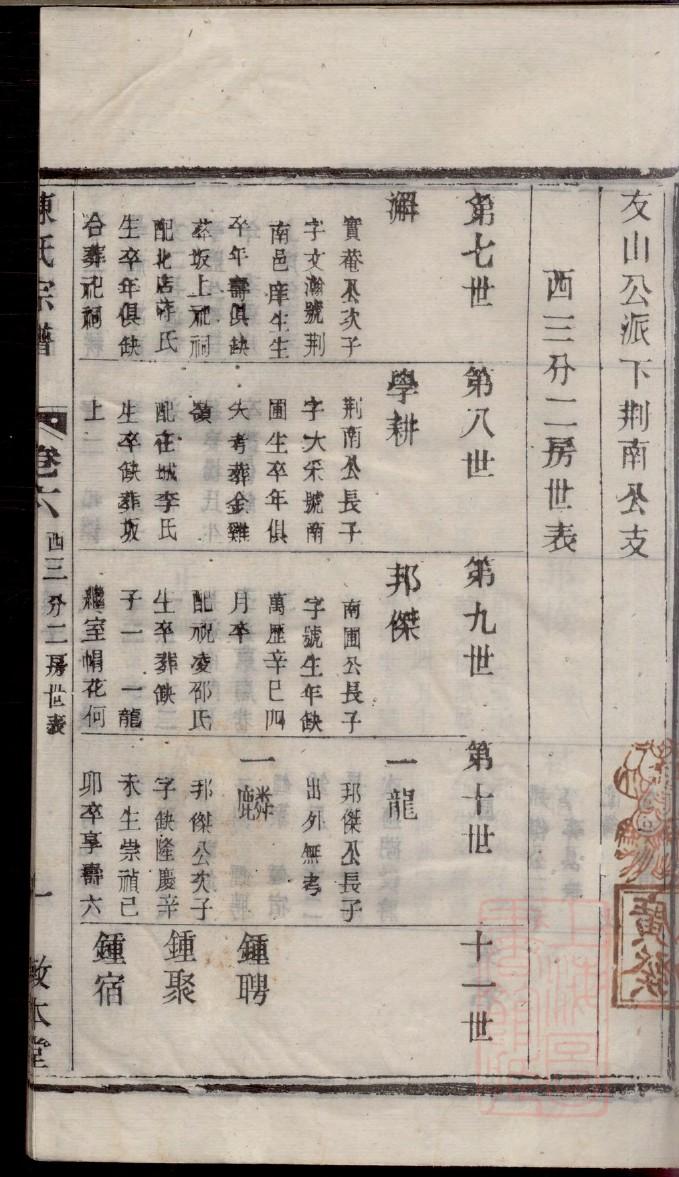 友山公派下荆南公支
西三分二房世表
第七世
第八世
第九世
第十世
十一世
澥
實菴公次子
字文瀚號荆
南邑庠生生
卒年壽俱缺
葬坂上祀祠
配北店許氏
生卒年俱缺
合葬祀祠
學耕
荆南公長子
字大采號南
圃生卒年俱
失考葬金雞
嶺
配在城李氏
生卒缺葬坂
上
邦傑
南圃公長子
字號生年缺
萬歷辛巳四
月卒
配祝凌邵氏
生卒葬缺
子一一龍
繼室帽花何
一龍
邦傑公長子
出外無考
一麟
邦傑公次子
字缺隆慶辛
未生崇禎己
卯卒享壽六
鍾聘
鍾聚
鍾宿
陳氏宗譜
卷六
西三分二房世表
一
敦本堂